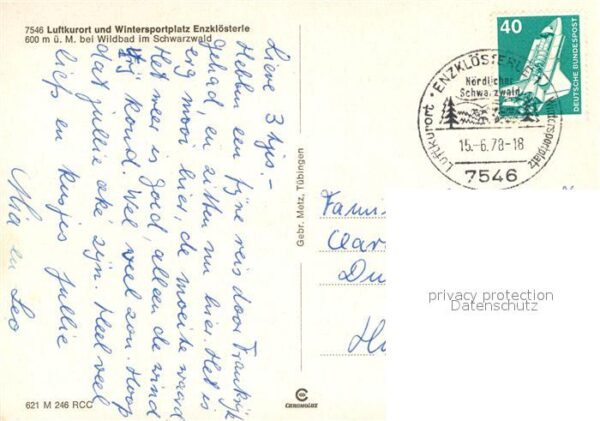 7546 Luftkurort und Wintersportplatz Enzklösterle
600 m ü. M. bei Wildbad im Schwarzwald
Lieve 3 tjes.-
Hebben een fijne reis door Frankrijk
gehad, en zitten nu hier. Het is
erg mooi hier, de moeite waard
Het weer is goed, alleen de wind
is koud. Wel veel zon. Hoop
dat jullie oké zijn. Heel veel
liefs en kusjes jullie
Mia en Leo
Gebr. Metz, Tübingen
40
DEUTSCHE BUNDESPOST
ENZKLÖSTERLE
Nördlicher
Schwarzwald
Luftkurort
Wintersportplatz
15.-6.78-18
7546
Fami
Clar
Du
privacy protection
Datenschutz
621 M 246 RCC
CHROMOLUX